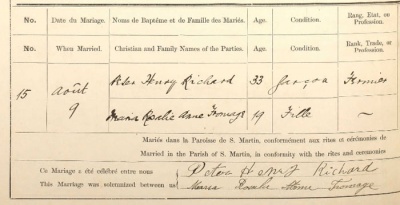 No. Date du Mariage. Noms de Baptême et de Famille des Mariés. Age. Condition. Rang, Etat, ou Profession.
No. When Married. Christian and Family Names of the Parties. Age. Condition. Rank, Trade, or Profession.
15 Août 9 Peter Henry Richard 33 Garçon Fermier
Maria Rosalie Anne Fromage 19 Fille ~
Mariés dans la Paroisse de S. Martin, conformément aux rites et cérémonies
Married in the Parish of S. Martin, in conformity with the rites and ceremonies
Ce Mariage a été célébré entre nous Peter Henry Richard
This Marriage was solemnized between us Maria Rosalie Anne Fromage